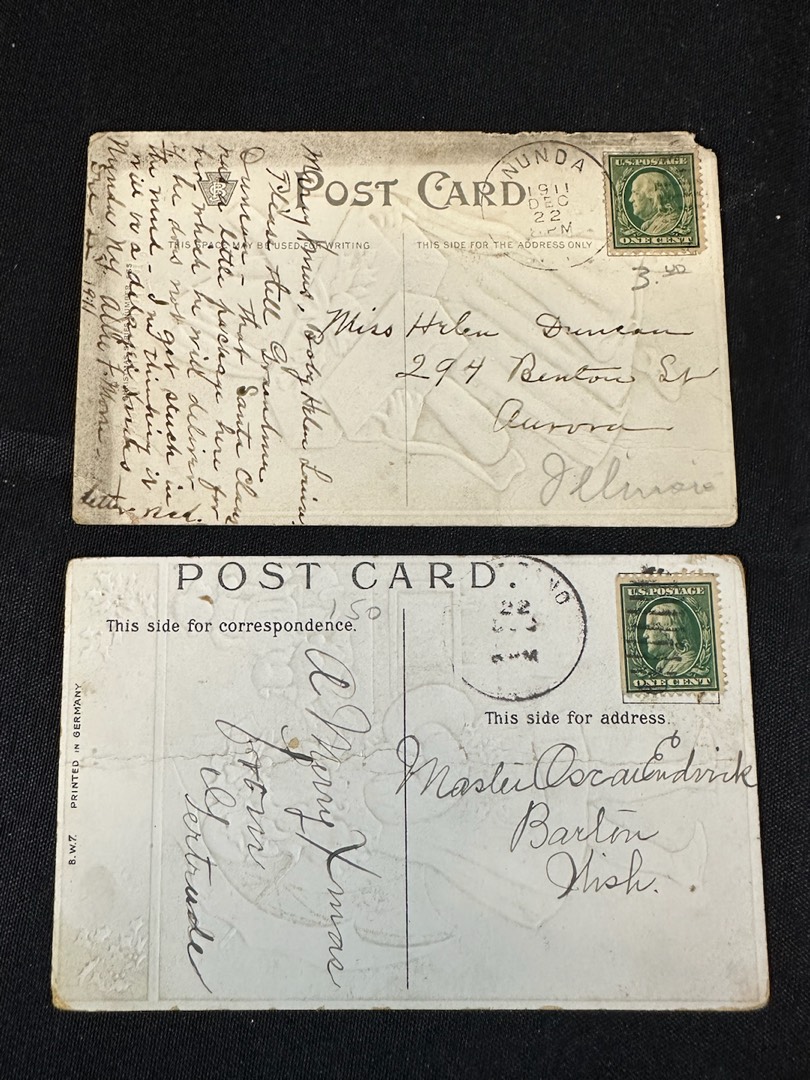 POST CARD
THIS SPACE MAY BE USED FOR WRITING
THIS SIDE FOR THE ADDRESS ONLY
NUNDA
1911
DEC
22
PM
U.S. POSTAGE
ONE CENT
3.
Miss Helen Duncan
294 Benton St
Aurora
Illinois
Merry Xmas, Baby Helen
Please tell Grandma
Duncan - that Santa Claus
has a little package here for
her which he will deliver
if he does not get stuck in
the mud - I'm thinking it
will be a
Nunda N.Y.
Dec 22 1911
letter rec'd.
POST CARD.
50
This side for correspondence.
22
PM
U.S. POSTAGE
ONE CENT
This side for address.
A Merry Xmas
from
Gertrude
Master Oscar
Barton
Wish.
B.W.7. PRINTED IN GERMANY